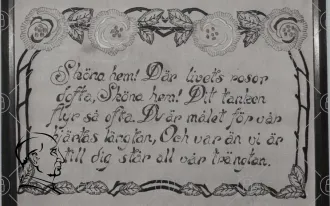 Sköna hem! Där livets rosor
dofta, Sköna hem! Dit tanken
flyr så ofta. Du är målet för vår
hjärtas längtan, Och var än vi är
till dig står all vår trängtan.